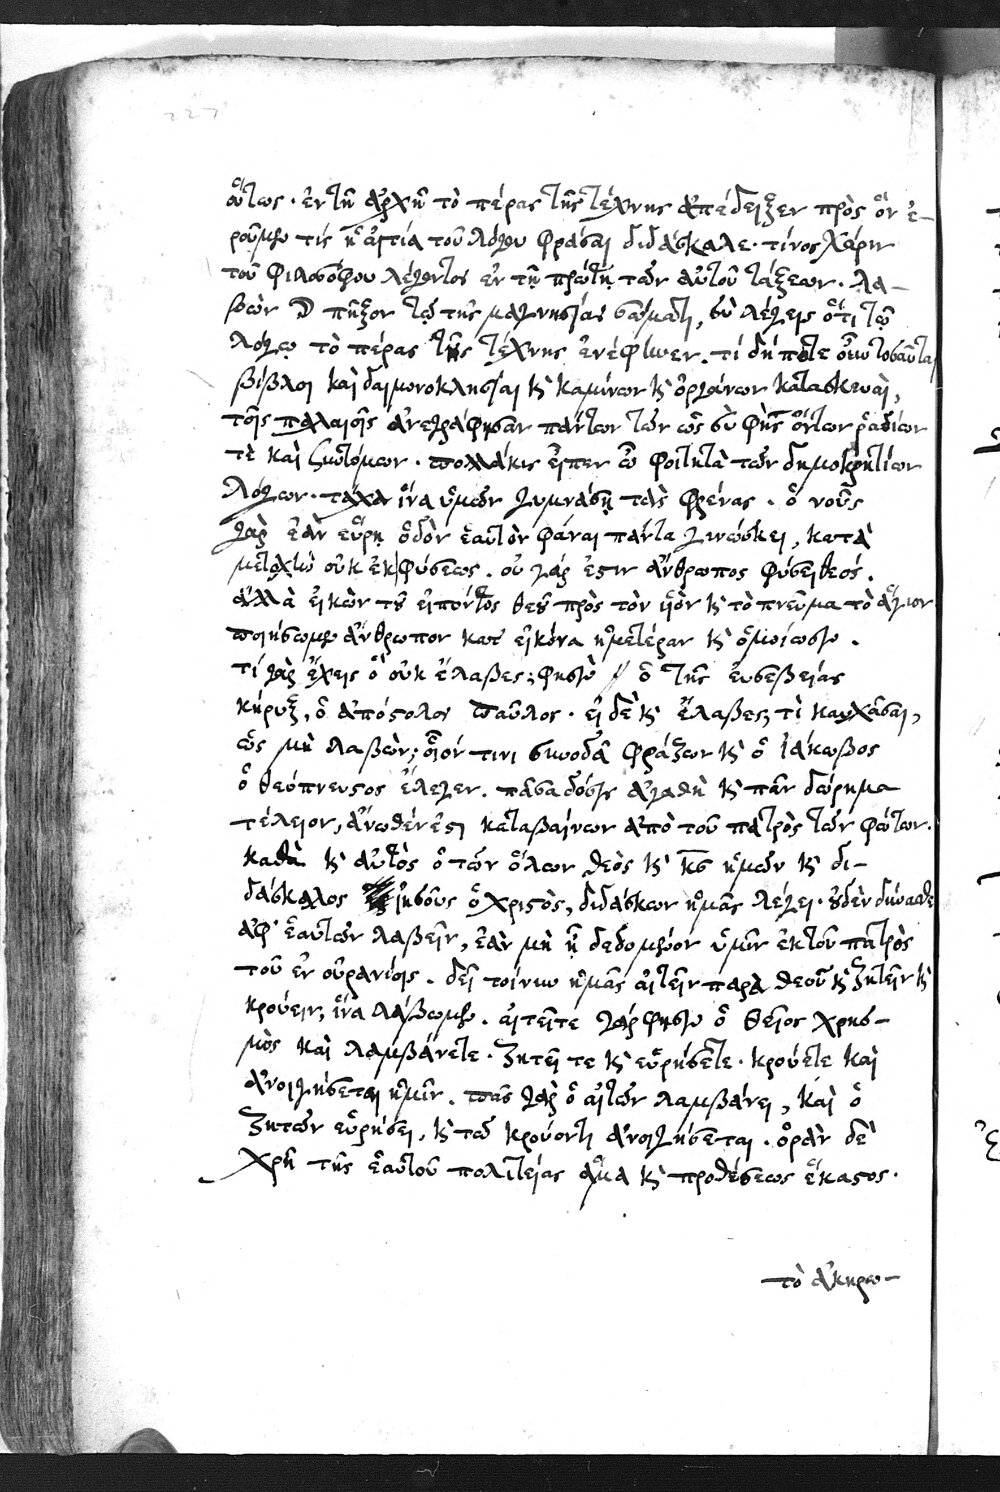 227
οὕτως· ἐν τῇ ἀρχῇ τὸ πέρας τῆς τέχνης ἀπέδειξεν πρὸς ὃν ἐ-
ροῦμεν τίς ἡ αἰτία τοῦ λόγου φράσαι διδάσκαλε· τίνος χάριν
τοῦ φιλοσόφου λέγοντος ἐν τῇ πρώτῃ τῶν αὐτοῦ τάξεων· λα-
βὼν πῆξον τῷ τῆς μαγνησίας σώματι, σὺ λέγεις ὅτι τῷ
λόγῳ τὸ πέρας τῆς τέχνης ἐνέφηνεν. τί δήποτε αὗται
βίβλοι καὶ δαιμονοκλησίαι καὶ καμίνων καὶ ὀργάνων κατασκευαὶ,
τοῖς παλαιοῖς ἀνεγράφησαν πάντων τῶν ὡς σὺ φῂς ὄντων ῥαδίων
τὲ καὶ συντόμων· πολλάκις εἶπεν ὦ φοιτητὰ τῶν δημοκριτίων
λόγων· τάχα ἵνα ὑμῶν γυμνάσῃ τὰς φρένας· ὁ νοῦς
γὰρ ἐὰν εὕρῃ ὁδὸν ἑαυτὸν φᾶναι πάντα γινώσκει, κατὰ
μετοχὴν οὐκ ἐκ φύσεως. οὐ γάρ ἐστιν ἄνθρωπος φύσει θεός.
ἀλλὰ εἰκὼν τοῦ εἰπόντος θεοῦ πρὸς τὸν υἱὸν καὶ τὸ πνεῦμα τὸ ἅγιον
ποιήσωμεν ἄνθρωπον κατ' εἰκόνα ἡμετέραν καὶ ὁμοίωσιν.
τί γὰρ ἔχεις ὃ οὐκ ἔλαβες; φησὶν // ὁ τῆς εὐσεβείας
κήρυξ, ὁ ἀπόστολος παῦλος· εἰ δὲ καὶ ἔλαβες, τὶ καυχᾶσαι,
ὡς μὴ λαβὼν; οἷόν τινι φράζων καὶ ὁ ἰάκωβος
ὁ θεόπνευστος ἔλεγεν. πᾶσα δόσις ἀγαθὴ καὶ πᾶν δώρημα
τέλειον, ἄνωθέν ἐστι καταβαίνων ἀπὸ τοῦ πατρὸς τῶν φώτων.
καθὰ καὶ αὐτὸς ὁ τῶν ὅλων θεὸς καὶ κ̅ς̅ ἡμῶν καὶ δι-
δάσκαλος ἰησοῦς ὁ χριστὸς, διδάσκων ἡμᾶς λέγει· οὐδὲν δύνασθε
ἀφ' ἑαυτῶν λαβεῖν, ἐὰν μὴ ᾖ δεδομένον ὑμῖν ἐκ τοῦ πατρὸς
τοῦ ἐν οὐρανίοις. δεῖ τοίνυν ἡμᾶς αἰτεῖν παρὰ θεοῦ καὶ ζητεῖν καὶ
κρούειν, ἵνα λάβωμεν. αἰτεῖτε γάρ φησιν ὁ θεῖος χρησ-
μὸς καὶ λαμβάνετε· ζητεῖ τε καὶ εὑρήσετε· κρούετε καὶ
ἀνοιγήσεται ἡμῖν. πᾶς γὰρ ὁ αἰτῶν λαμβάνει, καὶ ὁ
ζητῶν εὑρήσει, καὶ τῷ κρούοντι ἀνοιγήσεται. ὁρᾶν δὲ
χρὴ τῆς ἑαυτοῦ πολιτείας ἅμα καὶ προθέσεως ἕκαστος.
τὸ ἀκηρω-